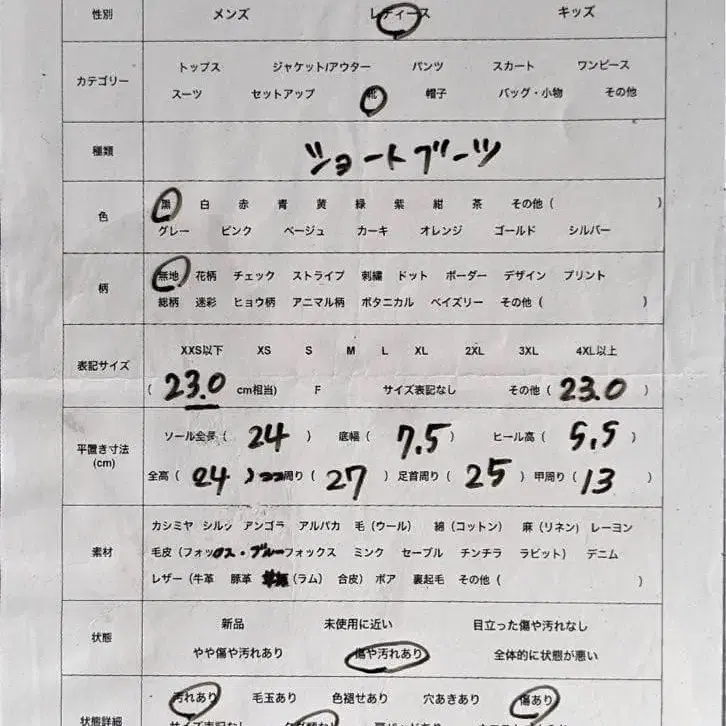 性別 メンズ レディース キッズ
カテゴリー
トップス ジャケット/アウター パンツ スカート ワンピース
スーツ セットアップ 靴 帽子 バッグ・小物 その他
種類 ショートブーツ
色
黒 白 赤 青 黄 緑 紫 紺 茶 その他 ( )
グレー ピンク ベージュ カーキ オレンジ ゴールド シルバー
柄
無地 花柄 チェック ストライプ 刺繍 ドット ボーダー デザイン プリント
総柄 迷彩 ヒョウ柄 アニマル柄 ボタニカル ペイズリー その他 ( )
表記サイズ
XXS以下 XS S M L XL 2XL 3XL 4XL以上
( 23.0 cm相当) F サイズ表記なし その他 ( 23.0 )
平置き寸法
(cm)
ソール全長 ( 24 ) 底幅 ( 7.5 ) ヒール高 ( 5.5 )
全高 ( 24 ) 周り ( 27 ) 足首周り ( 25 ) 甲周り ( 13 )
素材
カシミヤ シルク アンゴラ アルパカ 毛 (ウール) 綿 (コットン) 麻 (リネン) レーヨン
毛皮 (フォックス・ブルーフォックス ミンク セーブル チンチラ ラビット) デニム
レザー (牛革 豚革 (ラム) 合皮) ボア 裏起毛 その他 ( )
状態
新品 未使用に近い 目立った傷や汚れなし
やや傷や汚れあり 傷や汚れあり 全体的に状態が悪い
状態詳細
汚れあり 毛玉あり 色褪せあり 穴あきあり 傷あり
サイズ表記なし